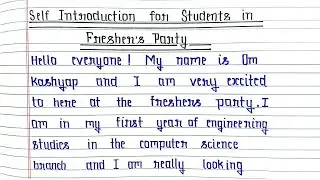 Self Introduction for Students in
Fresher's Party
Hello everyone! My name is Om
Kashyap and I am very excited
to here at the freshers party. I
am in my first year of engineering
studies in the computer science
branch and I am really looking